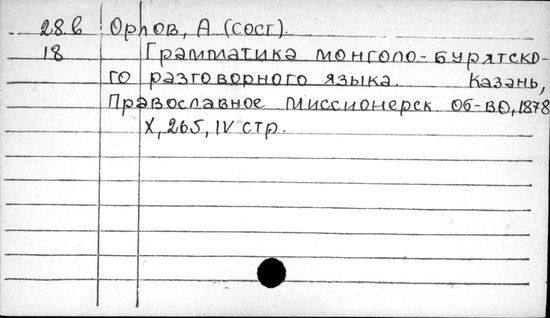 28.в Орлов, А (сост).
18 Грамматика монголо-бурятско-
го разговорного языка. Казань,
Православное миссионерск об-во, 1878
X, 265, IV стр.